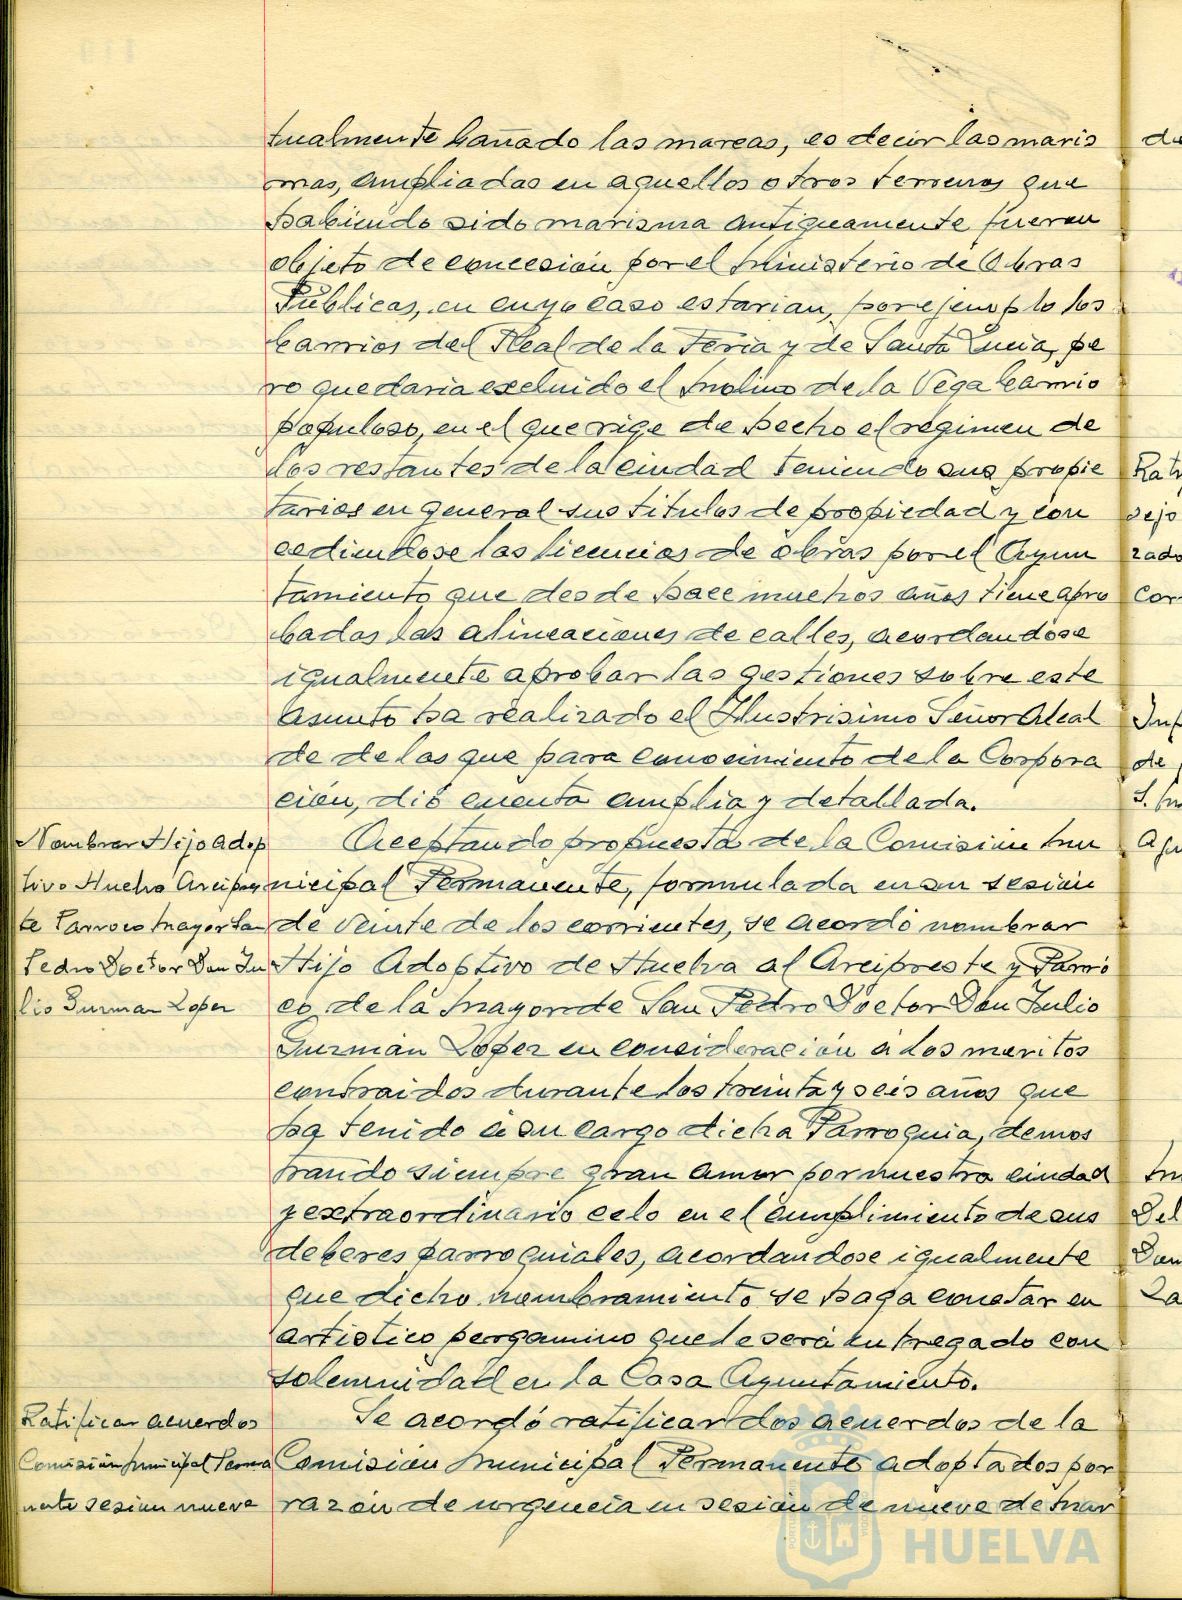 tualmente bañado las mareas, es decir las maris
mas, ampliadas en aquellos otros terrenos que
habiendo sido marisma antiguamente fueron
objeto de concesión por el Ministerio de Obras
Públicas, en cuyo caso estarian, por ejemplo los
barrios del Real de la Feria y de Santa Lucia, pe
ro quedaria excluido el Molino de la Vega barrio
populoso, en el que rige de hecho el régimen de
los restantes de la ciudad teniendo sus propie
tarios en general sus titulos de propiedad y con
cediendose las licencias de obras por el Ayun
tamiento que desde hace muchos años tiene apro
badas las alineaciones de calles, acordandose
igualmente aprobar las gestiones sobre este
asunto ha realizado el Ilustrisimo Señor Alcal
de de las que para conocimiento de la Corpora
ción, dió cuenta amplia y detallada.
Nombrar Hijo Adop
tivo Huelva Arcipres
te Parroco Mayor San
Pedro Doctor Don Ju
lio Guzman Lopez
Aceptando propuesta de la Comisión Mu
nicipal Permanente, formulada en su sesión
de veinte de los corrientes, se acordó nombrar
Hijo Adoptivo de Huelva al Arcipreste y Parró
co de la Mayor de San Pedro Doctor Don Julio
Guzmán López en consideración á los meritos
contraidos durante los treinta y seis años que
ha tenido á su cargo dicha Parroquia, demos
trando siempre gran amor por nuestra ciudad
y extraordinario celo en el cumplimiento de sus
deberes parroquiales, acordandose igualmente
que dicho nombramiento se haga constar en
artistico pergamino que le será entregado con
solemnidad en la Casa Ayuntamiento.
Ratificar acuerdos
Comisión Municipal Perma
nente sesion nueve
Se acordó ratificar los acuerdos de la
Comisión Municipal Permanente adoptados por
razón de urgencia en sesión de nueve de Mar
de
Rati
sejo
zado
cor
de
S. M
Del
Don
HUELVA